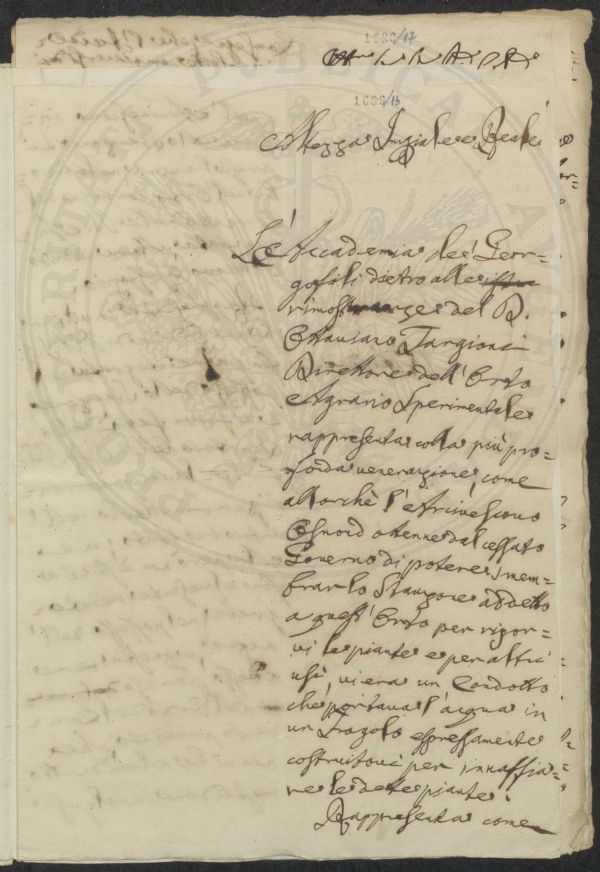 1688/17
1688/13
Altezza Impiale e Reale
L'Accademia de' Geor=
gofili dietro alle
rimostranze del D.
Ottaviano Targioni
Direttore dell' Orto
Agrario Sperimentale
rappresenta colla più pro=
fonda venerazione, come
allorchè l'Arcivescovo
Osmond ottenne dal cessato
Governo di potere smem=
brar lo Stanzone addetto
a quest' Orto per ripor=
vi le piante e per altri
usi, vi era un Condotto
che portava l'acqua in
un Trogolo espressamente
costruitovi per innaffia=
re le dette piante.
Rappresenta come